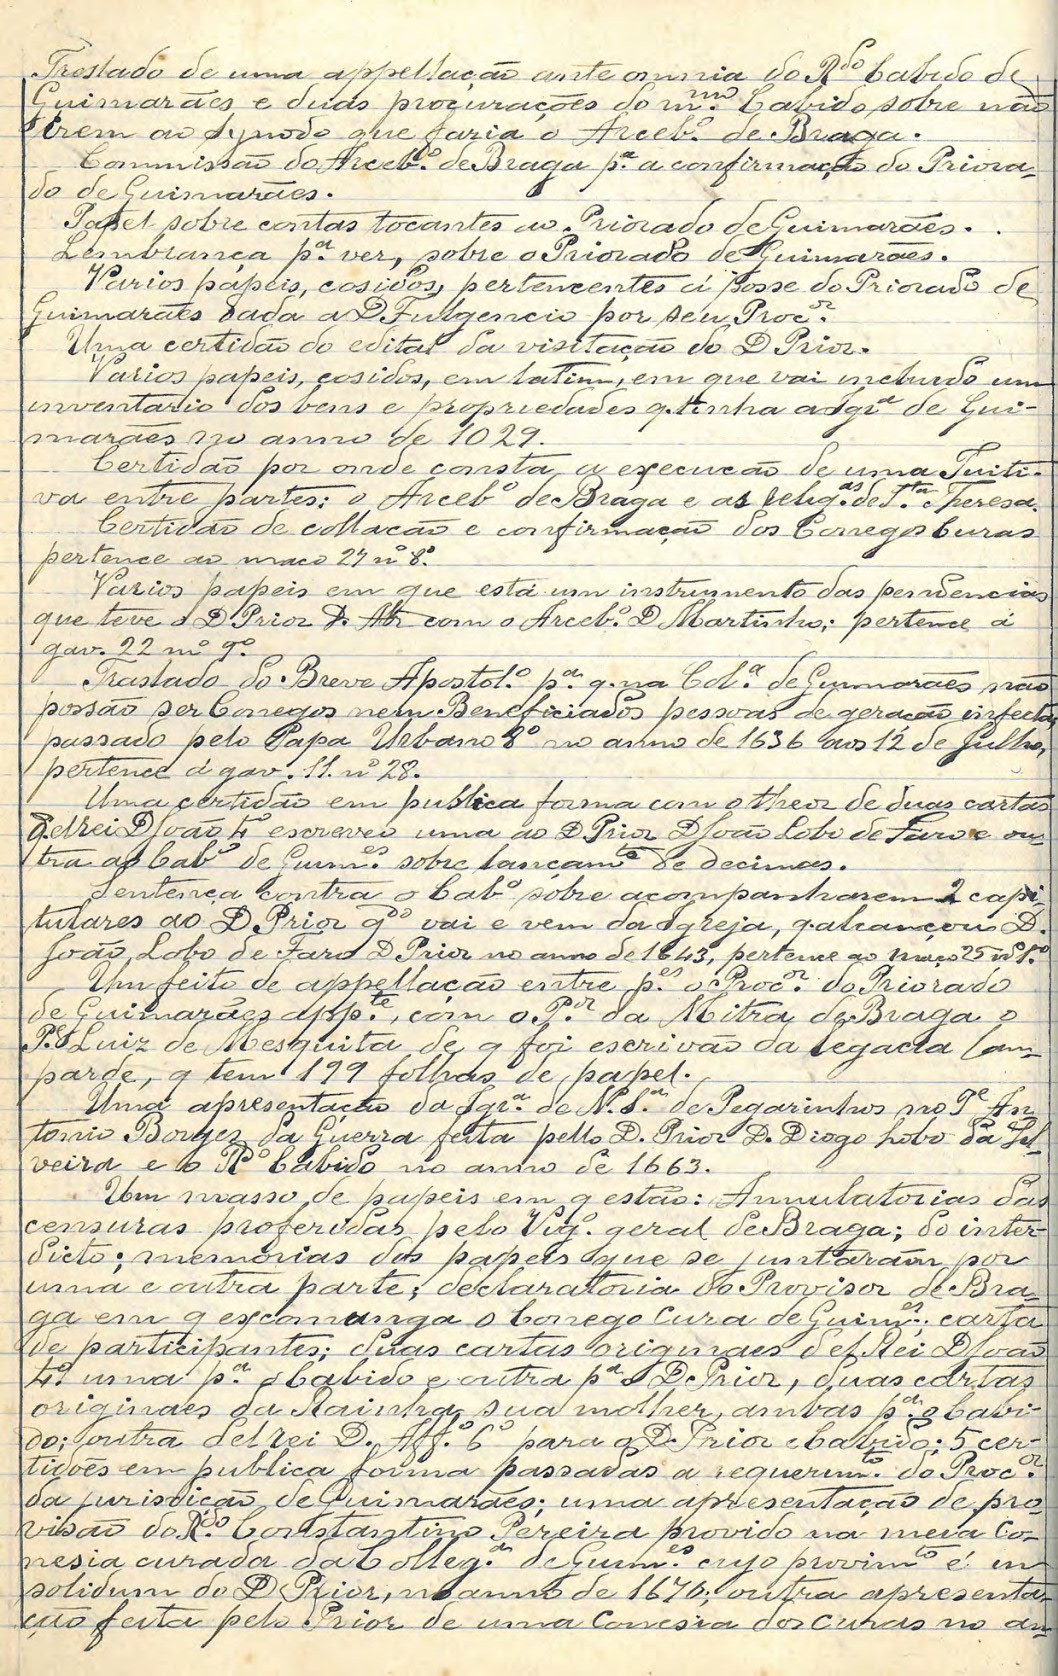 Treslado de uma appellação ante omnia do R.do Cabido de
Guimarães e duas procurações do m.mo Cabido sobre não
irem ao Synodo que faria o Arceb.o de Braga.
Commissão do Arceb.o de Braga p.a a confirmação do Priora-
do de Guimarães.
Papel sobre contas tocantes ao Priorado de Guimarães.
Lembrança p.a ver, sobre o Priorado de Guimarães.
Varios papeis, cosidos, pertencentes á posse do Priorado de
Guimarães dada a D Fulgencio por seu Proc.or
Uma certidão do edital da visitação do D Prior.
Varios papeis, cosidos, em latim, em que vai incluido um
inventario dos bens e propriedades q. tinha a Igr.a de Gui-
marães no anno de 1029.
Certidão por onde consta a execução de uma Tuiti-
va entre partes: o Arceb.o de Braga e as relig.as de S.ta Theresa.
Certidão de collação e confirmação dos Conegos Curas
pertence ao maco 27 nº 8º.
Varios papeis em que está um instrumento das pendencias
que teve o D Prior D. Aff com o Arceb.o D Martinho; pertence á
gav. 22 nº 9º
Traslado do Breve Apostol.o p.a q. na Col.a de Guimarães não
possão ser Conegos nem Beneficiados pessoas de geração infecta,
passado pelo Papa Urbano 8º no anno de 1636 aos 12 de Julho,
pertence á gav. 11. nº 28.
Uma certidão em publica forma com o theor de duas cartas
q. elrei D João 4º escreveo uma ao D Prior D João Lobo de Faro e ou-
tra ao Cab.o de Guim.es sobre lançam.to de decimas.
Sentença contra o Cab.o sobre acompanharem 2 capi-
tulares ao D Prior q.do vai e vem da Igreja, q. alcançou D.
João Lobo de Faro D Prior no anno de 1643, pertence ao maço 25 nº 1.º
Um feito de appellação entre p.es o Proc.or do Priorado
de Guimarães app.te, com o P.or da Mitra de Braga o
P.e Luiz de Mesquita de q foi escrivão da legacia Cam-
parde, q tem 199 folhas de papel.
Uma apresentação da Igr.a de N. S.ra de Pegarinhos no P.e An-
tonio Borges da Guerra feita pello D. Prior D. Diogo Lobo da Sil-
veira e o R.do Cabido no anno de 1663.
Um masso de papeis em q estão: Annulatorias das
censuras proferidas pelo Vig.o geral de Braga; do inter-
dicto; memorias dos papeis que se juntaram por
uma e outra parte; declaratoria do Provisor de Bra-
ga em q excomunga o Conego Cura de Guim.es; carta
de participantes; duas cartas originaes del Rei D João
4º uma p.a o Cabido e outra p.a o D Prior, duas cartas
originaes da Rainha sua molher, ambas p.a o Cabi-
do; outra del rei D. Aff.o 6º para o D. Prior e Cabido; 5 cer-
tidoẽs em publica forma passadas a requerim.to do Proc.or
da jurisdição de Guimarães; uma apresentação de pro-
visão do R.do Constantino Pereira provido na meia Co-
nesia curada da Colleg.a de Guim.es cujo provim.to é in
solidum do D Prior, no anno de 1670; outra apresenta-
ção feita pelo Prior de uma Conesia dos Curas no an-